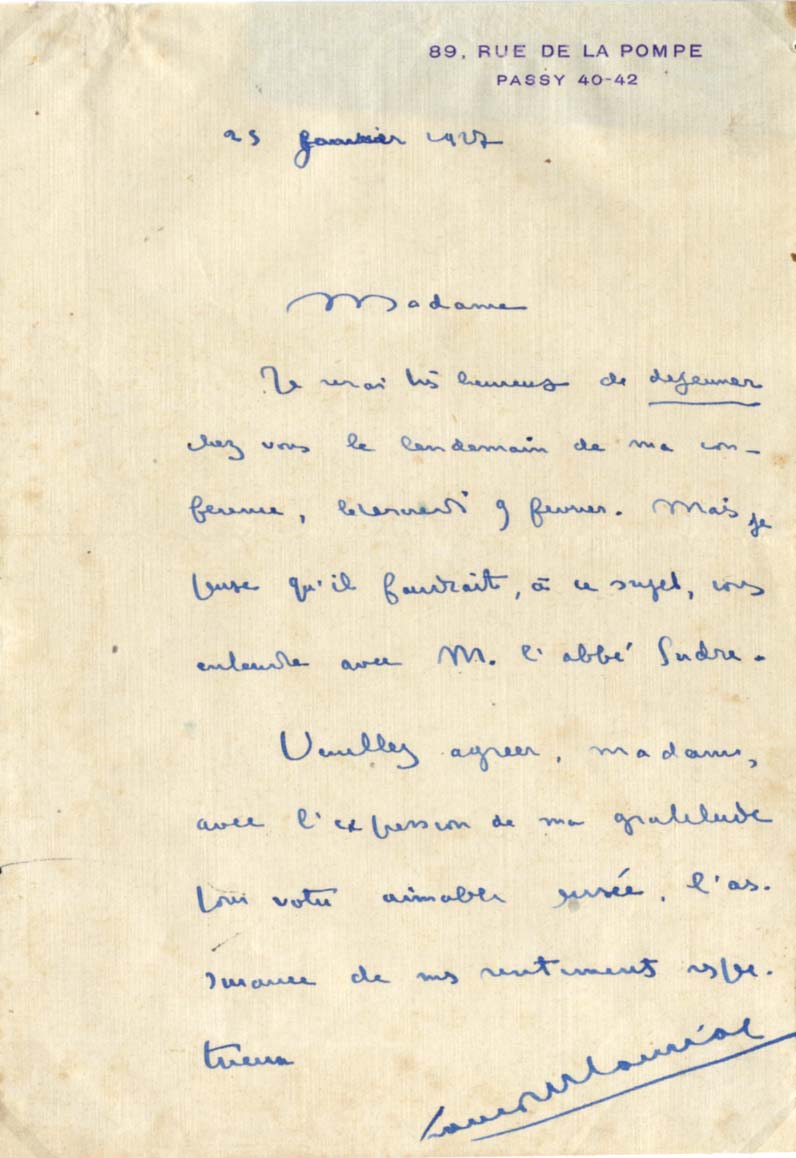 89, RUE DE LA POMPE
PASSY 40-42
25 janvier 1927
Madame
Je serai très heureux de dejeuner
chez vous le lendemain de ma con-
ference, le mercredi 9 fevrier. Mais je
pense qu'il faudrait, à ce sujet, vous
entendre avec M. l'abbé Sudre.
Veuillez agreer, madame,
avec l'expression de ma gratitude
pour votre aimable pensée, l'as-
surance de mes sentiments respec-
tueux